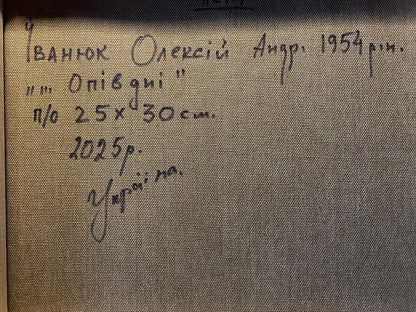 Їванюк Олексій Андр. 1954 р.н.
„„ Опівдні "
п/о 25 х 30 см.
2025р.
Україна.